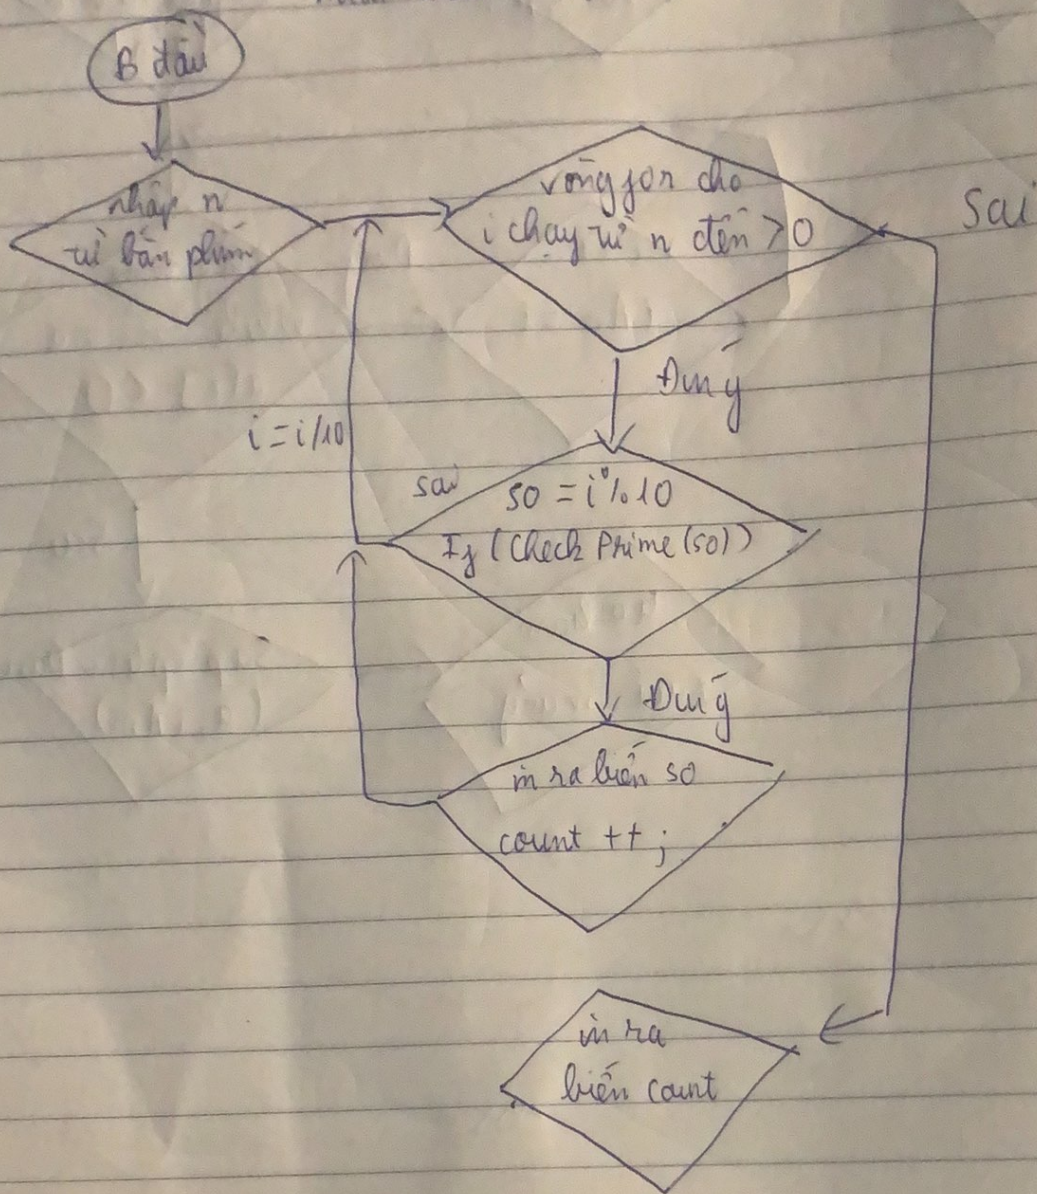 B đầu
nhập n
từ bàn phím
vòng for cho
i chạy từ n đến >0
Sai
Đúng
i = i/10
sai
so = i % 10
If (Check Prime (so))
Đúng
in ra biến so
count ++ ;
in ra
biến count